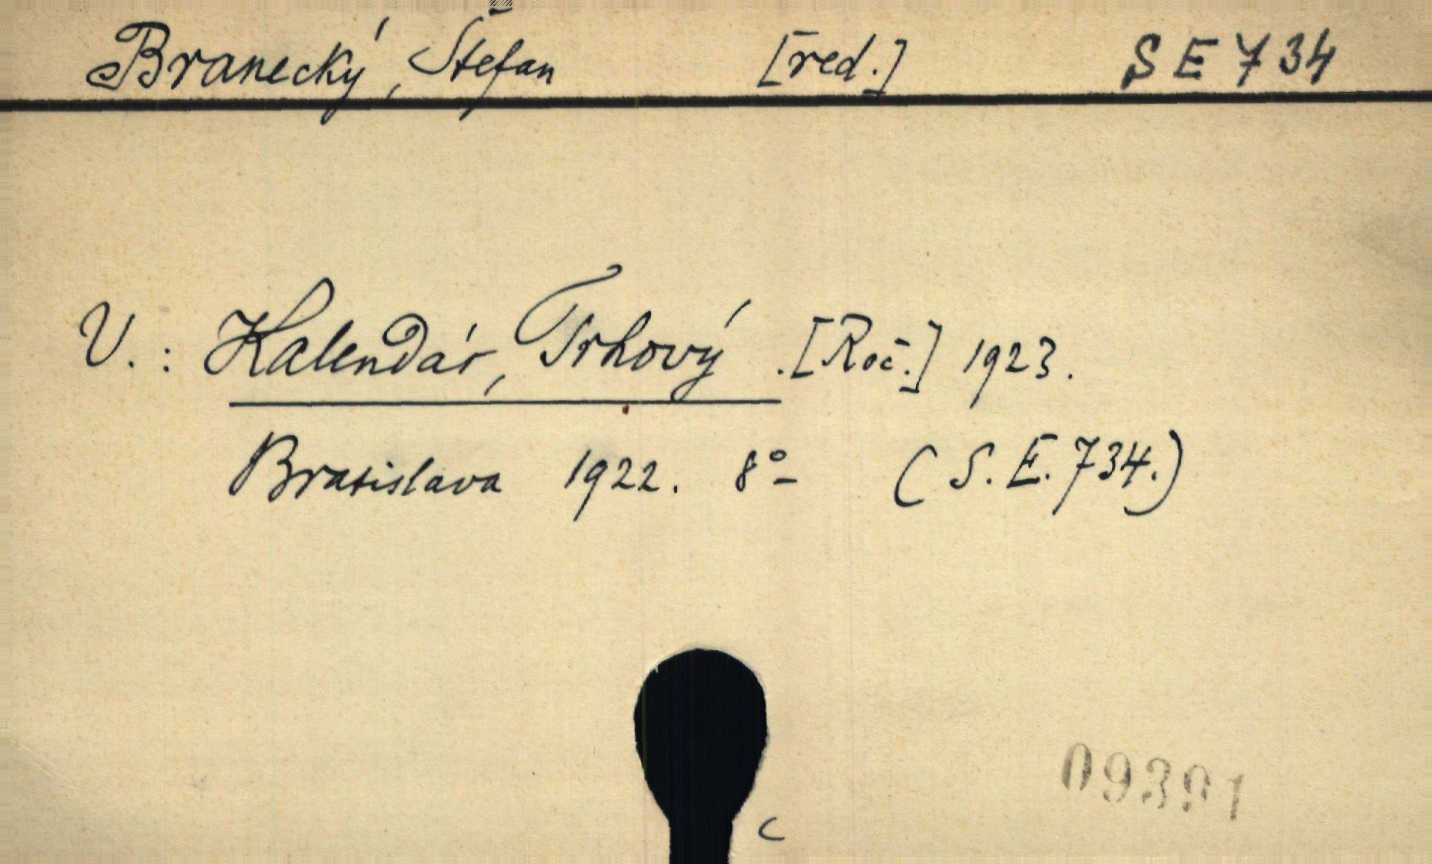 Branecký, Štefan [red.] SE734
V.: Kalendár, Trhový. [Roč.] 1923.
Bratislava 1922. 8° (S.E.734.)
c